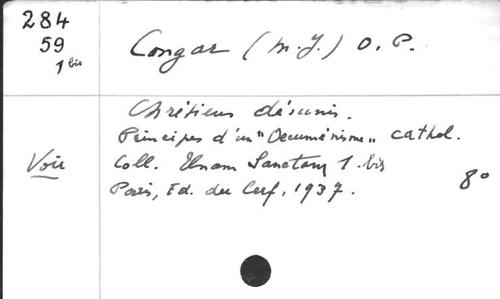 284
59
1 bis
Congar (M.J.) O.P.
Chrétiens désunis.
Principes d'un "Oecuménisme" cathol.
Voir
Coll. Unam Sanctam 1 bis
Paris, Ed. du Cerf, 1937.
8°